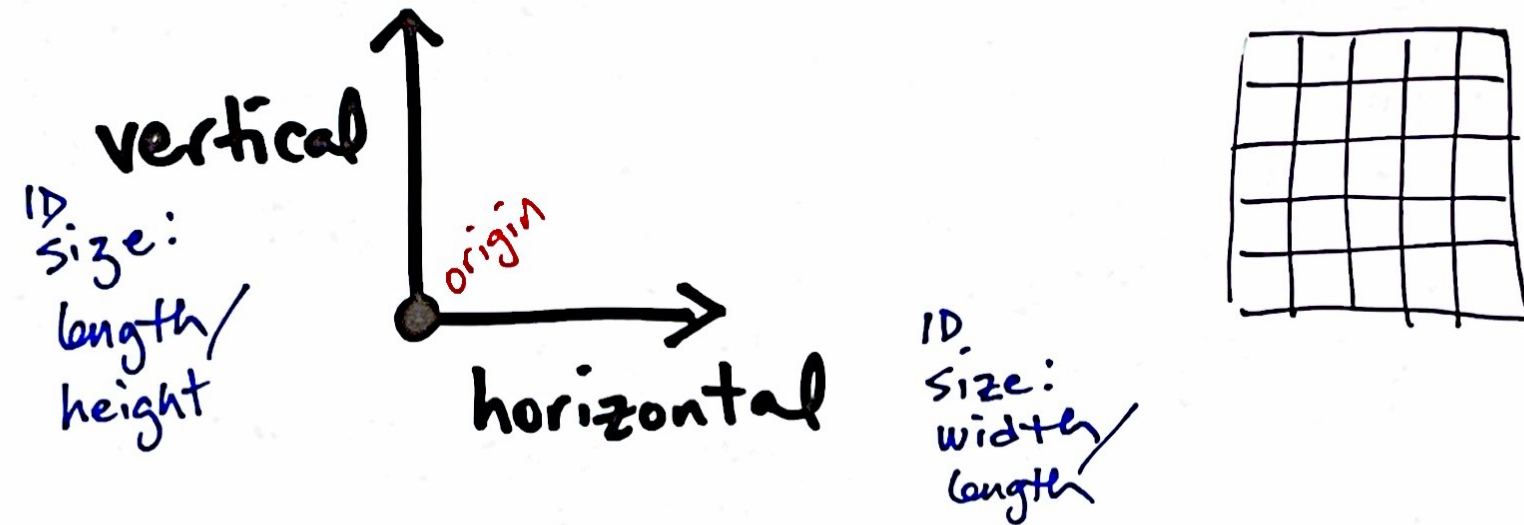 vertical
1D
size:
length/
height
origin
horizontal
1D
size:
width/
length